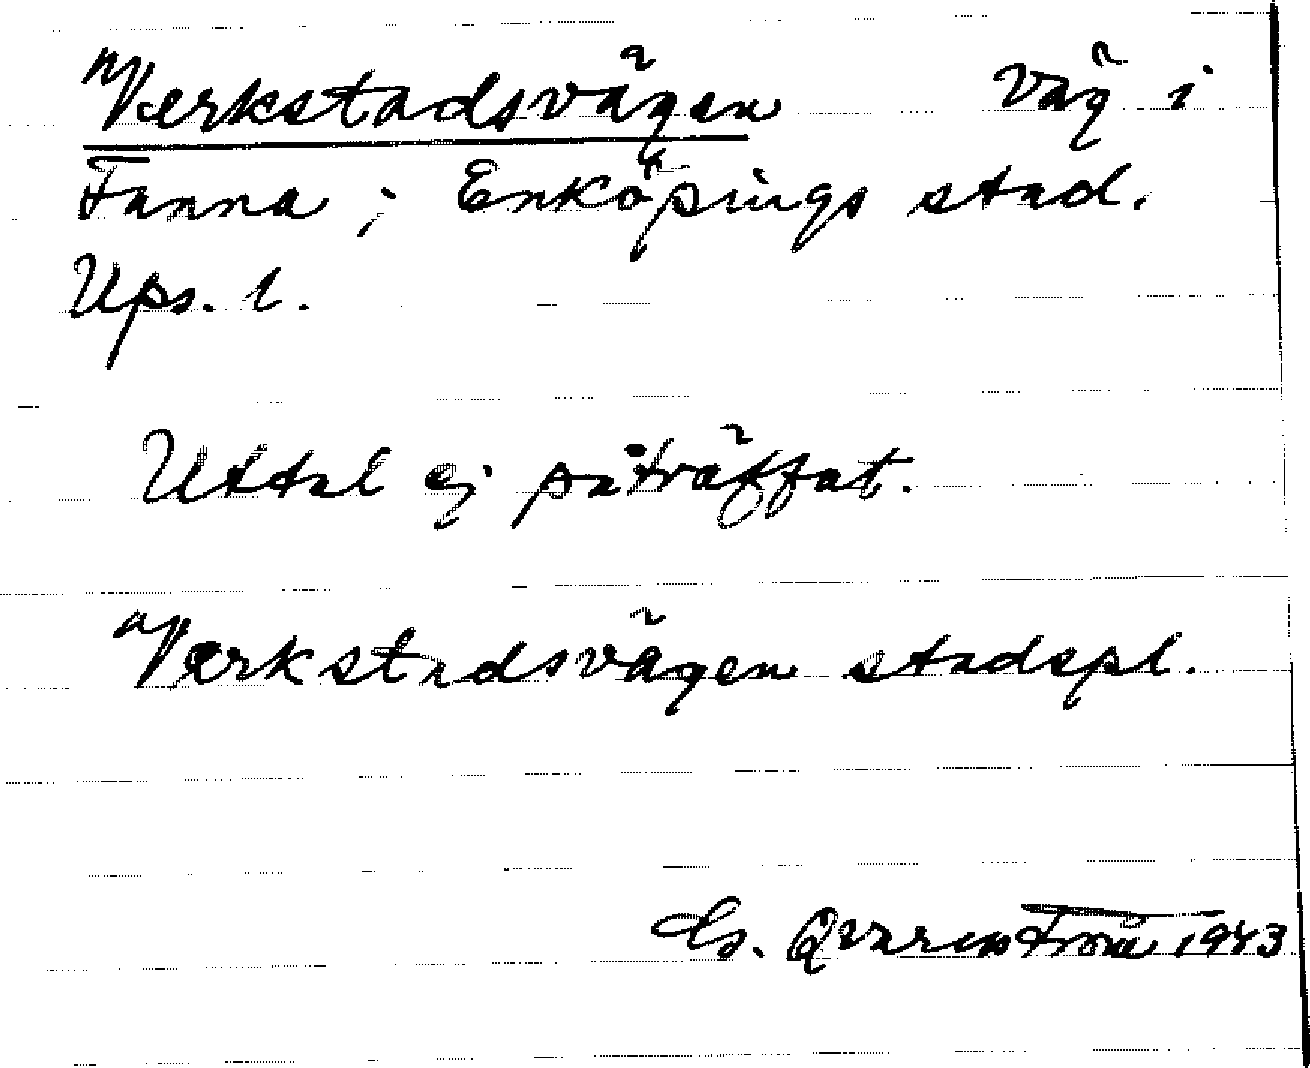 Verkstadsvägen Väg i
Fanna i Enköpings stad.
Ups. l.
Uttal ej påträffat.
Verkstadsvägen stadspl.
G. Qvarnström 1943